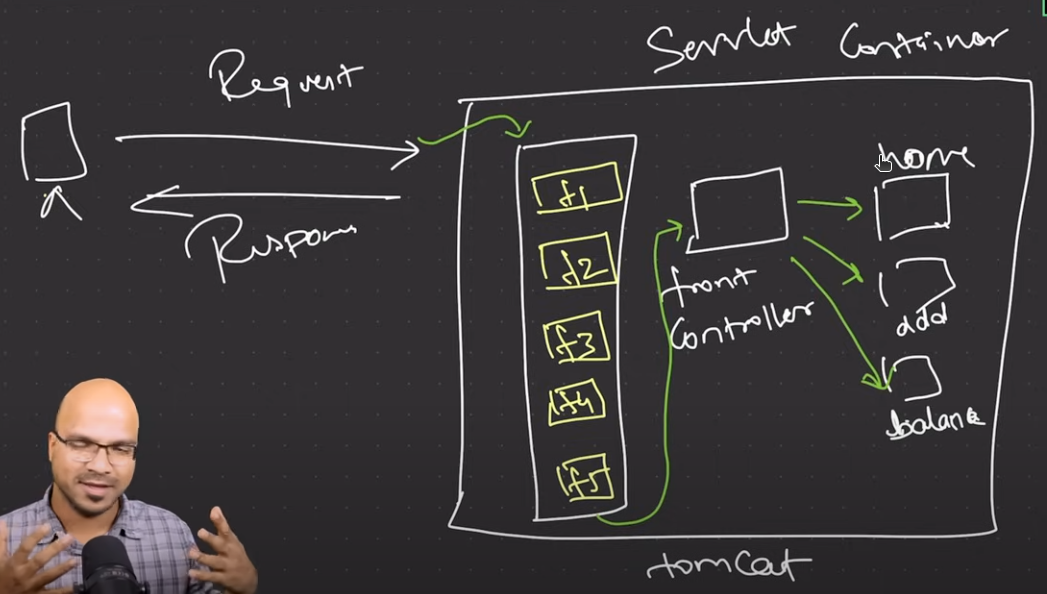 Servlet Container
Request
Respons
f1
f2
f3
f4
f5
front
Controller
home
add
balance
tomcat